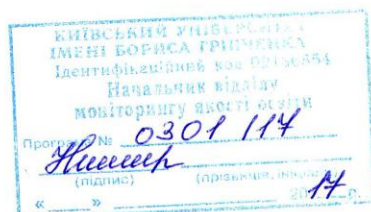 КИЇВСЬКИЙ УНІВЕРСИТЕТ
ІМЕНІ БОРИСА ГРІНЧЕНКА
Ідентифікаційний код 02136554
Начальник відділу
моніторингу якості освіти
Програма № 0301/17
(підпис) (прізвище,
« » 2017 р.